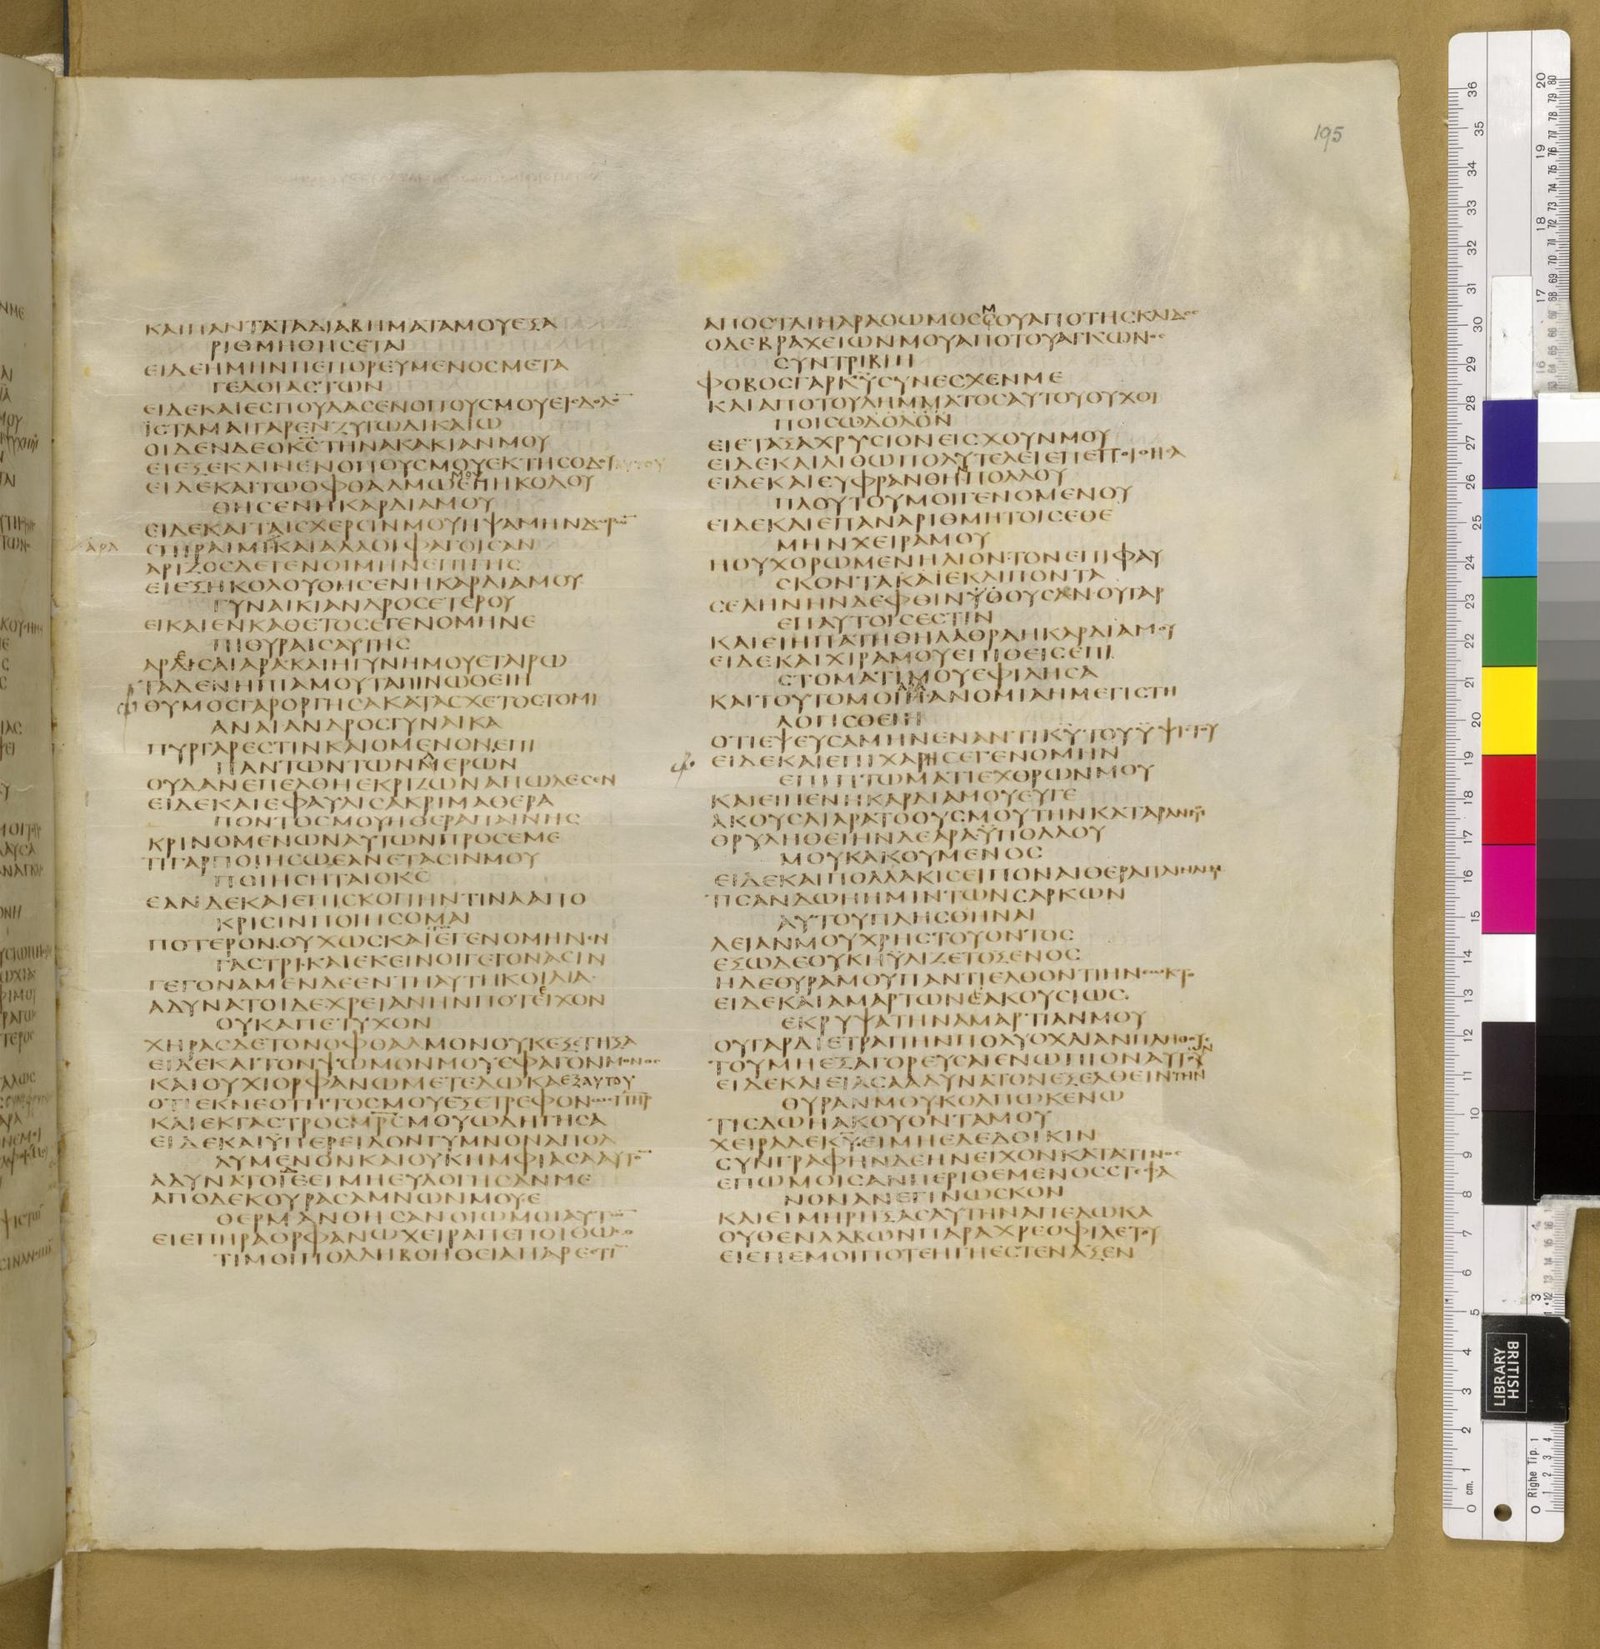 195
ΚΑΙΠΑΝΤΑΤΑΔΙΑΒΗΜΑΤΑΜΟΥΕΞΑ
ΡΙΘΜΗΘΗϹΕΤΑΙ
ΕΙΔΕΗΜΗΝΠΕΠΟΡΕΥΜΕΝΟϹΜΕΤΑ
ΓΕΛΟΙΑϹΤΩΝ
ΕΙΔΕΚΑΙΕϹΠΟΥΔΑϹΕΝΟΠΟΥϹΜΟΥΕΙϹΔΟΛΟ
ΪϹΤΑΜΑΙΓΑΡΕΝΖΥΓΩΔΙΚΑΙΩ
ΟΙΔΕΝΔΕΟΚϹΤΗΝΑΚΑΚΙΑΝΜΟΥ
ΕΙΕΞΕΚΛΙΝΕΝΟΠΟΥϹΜΟΥΕΚΤΗϹΟΔΟΥ
ΕΙΔΕΚΑΙΤΩΟΦΘΑΛΜΩΜΟΥΕΠΗΚΟΛΟΥ
ΘΗϹΕΝΗΚΑΡΔΙΑΜΟΥ
ΕΙΔΕΚΑΙΤΑΙϹΧΕΡϹΙΝΜΟΥΗΨΑΜΗΝΔΩΡΩ
ϹΠΙΡΑΙΜΙΚΑΙΑΛΛΟΙΦΑΓΟΙϹΑΝ
ΑΡΙΖΟϹΔΕΓΕΝΟΙΜΗΝΕΠΙΓΗϹ
ΕΙΕΞΗΚΟΛΟΥΘΗϹΕΝΗΚΑΡΔΙΑΜΟΥ
ΓΥΝΑΙΚΙΑΝΔΡΟϹΕΤΕΡΟΥ
ΕΙΚΑΙΕΝΚΑΘΕΤΟϹΕΓΕΝΟΜΗΝΕ
ΠΙΘΥΡΑΙϹΑΥΤΗϹ
ΑΡΕϹΑΙΑΡΑΚΑΙΗΓΥΝΗΜΟΥΕΤΑΙΡΩ
ΤΑΔΕΝΗΠΙΑΜΟΥΤΑΠΙΝΩΘΕΙΗ
ΘΥΜΟϹΓΑΡΟΡΓΗϹΑΚΑΤΑϹΧΕΤΟϹΤΟΜΙ
ΑΝΑΙΑΝΔΡΟϹΓΥΝΑΙΚΑ
ΠΥΡΓΑΡΕϹΤΙΝΚΑΙΟΜΕΝΟΝΕΠΙ
ΠΑΝΤΩΝΤΩΝΜΕΡΩΝ
ΟΥΔΑΝΕΠΕΛΘΗΕΚΡΙΖΩΝΑΠΩΛΕϹΕΝ
ΕΙΔΕΚΑΙΕΦΑΥΛΙϹΑΚΡΙΜΑΘΕΡΑ
ΠΟΝΤΟϹΜΟΥΗΘΕΡΑΠΑΙΝΗϹ
ΚΡΙΝΟΜΕΝΩΝΑΥΤΩΝΠΡΟϹΕΜΕ
ΤΙΓΑΡΠΟΙΗϹΩΕΑΝΕΤΑϹΙΝΜΟΥ
ΠΟΙΗϹΗΤΑΙΟΚϹ
ΕΑΝΔΕΚΑΙΕΠΙϹΚΟΠΗΝΤΙΝΑΑΠΟ
ΚΡΙϹΙΝΠΟΙΗϹΟΜΑΙ
ΠΟΤΕΡΟΝΟΥΧΩϹΚΑΙΕΓΕΝΟΜΗΝΕΝ
ΓΑϹΤΡΙΚΑΙΕΚΕΙΝΟΙΓΕΓΟΝΑϹΙΝ
ΓΕΓΟΝΑΜΕΝΔΕΕΝΤΗΑΥΤΗΚΟΙΛΙΑ
ΑΔΥΝΑΤΟΙΔΕΧΡΕΙΑΝΗΝΠΟΤΕΙΧΟΝ
ΟΥΚΑΠΕΤΥΧΟΝ
ΧΗΡΑϹΔΕΤΟΝΟΦΘΑΛΜΟΝΟΥΚΕΞΕΤΗΞΑ
ΕΙΔΕΚΑΙΤΟΝΨΩΜΟΝΜΟΥΕΦΑΓΟΝΜΟΝΟϹ
ΚΑΙΟΥΧΙΟΡΦΑΝΩΜΕΤΕΔΩΚΑΕΞΑΥΤΟΥ
ΟΤΙΕΚΝΕΟΤΗΤΟϹΜΟΥΕΞΕΤΡΕΦΟΝΩϹΠΗΡ
ΚΑΙΕΚΓΑϹΤΡΟϹΜΡϹΜΟΥΩΔΗΓΗϹΑ
ΕΙΔΕΚΑΙΥΠΕΡΕΙΔΟΝΓΥΜΝΟΝΑΠΟΛ
ΛΥΜΕΝΟΝΚΑΙΟΥΚΗΜΦΙΑϹΑΑΥΤΟ
ΑΔΥΝΑΤΟΙΔΕΕΙΜΗΕΥΛΟΓΗϹΑΝΜΕ
ΑΠΟΔΕΚΟΥΡΑϹΑΜΝΩΝΜΟΥΕ
ΘΕΡΜΑΝΘΗϹΑΝΟΙΩΜΟΙΑΥΤΩ
ΕΙΕΠΗΡΑΟΡΦΑΝΩΧΕΙΡΑΠΕΠΟΙΘΩϹΟ
ΤΙΜΟΙΠΟΛΛΗΒΟΗΘΕΙΑΠΑΡΕϹΤΙ
ΑΠΟϹΤΑΙΗΑΡΑΟΩΜΟϹΜΟΥΑΠΟΤΗϹΚΛΙΔΟϹ
ΟΔΕΒΡΑΧΕΙΩΝΜΟΥΑΠΟΤΟΥΑΓΚΩΝΟϹ
ϹΥΝΤΡΙΒΙΗ
ΦΟΒΟϹΓΑΡΚΥϹΥΝΕϹΧΕΝΜΕ
ΚΑΙΑΠΟΤΟΥΛΗΜΜΑΤΟϹΑΥΤΟΥΟΥΧΟΙ
ΠΟΙϹΩ
ΕΙΕΤΑΞΑΧΡΥϹΙΟΝΕΙϹΧΟΥΝΜΟΥ
ΕΙΔΕΚΑΙΛΙΘΩΠΟΛΥΤΕΛΕΙΕΠΕΠΟΙΘΗϹΑ
ΕΙΔΕΚΑΙΕΥΦΡΑΝΘΗΝΠΟΛΛΟΥ
ΠΛΟΥΤΟΥΜΟΙΓΕΝΟΜΕΝΟΥ
ΕΙΔΕΚΑΙΕΠΑΝΑΡΙΘΜΗΤΟΙϹΕΘΕ
ΜΗΝΧΕΙΡΑΜΟΥ
ΗΟΥΧΟΡΩΜΕΝΗΛΙΟΝΤΟΝΕΠΙΦΑΥ
ϹΚΟΝΤΑΚΑΙΕΚΛΙΠΟΝΤΑ
ϹΕΛΗΝΗΝΔΕΦΘΙΝΥΘΟΥϹΑΝΟΥΓΑΡ
ΕΠΑΥΤΟΙϹΕϹΤΙΝ
ΚΑΙΕΙΗΠΑΤΗΘΗΛΑΘΡΑΗΚΑΡΔΙΑΜΟΥ
ΕΙΔΕΚΑΙΧΙΡΑΜΟΥΕΠΙΘΕΙϹΕΠΙ
ϹΤΟΜΑΤΙΜΟΥΕΦΙΛΗϹΑ
ΚΑΙΤΟΥΤΟΜΟΙΑΡΑΑΝΟΜΙΑΗΜΕΓΙϹΤΗ
ΛΟΓΙϹΘΕΙΗ
ΟΤΙΕΨΕΥϹΑΜΗΝΕΝΑΝΤΙΚΥΤΟΥΥΨΙϹΤΟΥ
ΕΙΔΕΚΑΙΕΠΙΧΑΡΗϹΕΓΕΝΟΜΗΝ
ΕΠΙΠΤΩΜΑΤΙΕΧΘΡΩΝΜΟΥ
ΚΑΙΕΙΠΕΝΗΚΑΡΔΙΑΜΟΥΕΥΓΕ
ΑΚΟΥϹΑΙΑΡΑΤΟΟΥϹΜΟΥΤΗΝΚΑΤΑΡΑΝΜΟΥ
ΘΡΥΛΗΘΕΙΗΝΔΕΑΡΑΫΠΟΛΑΟΥ
ΜΟΥΚΑΚΟΥΜΕΝΟϹ
ΕΙΔΕΚΑΙΠΟΛΛΑΚΙϹΕΙΠΟΝΑΙΘΕΡΑΠΑΙΝΑΙΜΟΥ
ΤΙϹΑΝΔΩΗΗΜΙΝΤΩΝϹΑΡΚΩΝ
ΑΥΤΟΥΠΛΗϹΘΗΝΑΙ
ΛΕΙΑΝΜΟΥΧΡΗϹΤΟΥΟΝΤΟϹ
ΕΞΩΔΕΟΥΚΗΥΛΙΖΕΤΟΞΕΝΟϹ
ΗΔΕΘΥΡΑΜΟΥΠΑΝΤΙΕΛΘΟΝΤΙΗΝΕΩΚΤΟ
ΕΙΔΕΚΑΙΑΜΑΡΤΩΝΕΑΚΟΥϹΙΩϹ
ΕΚΡΥΨΑΤΗΝΑΜΑΡΤΙΑΝΜΟΥ
ΟΥΓΑΡΔΙΕΤΡΑΠΗΝΠΟΛΥΟΧΛΙΑΝΠΛΗΘΟΥϹ
ΤΟΥΜΗΕΞΑΓΟΡΕΥϹΑΙΕΝΩΠΙΟΝΑΥΤΟΥ
ΕΙΔΕΚΑΙΕΙΑϹΑΑΔΥΝΑΤΟΝΕΞΕΛΘΕΙΝΤΗΝ
ΘΥΡΑΝΜΟΥΚΟΛΠΩΚΕΝΩ
ΤΙϹΔΩΗΑΚΟΥΟΝΤΑΜΟΥ
ΧΕΙΡΑΔΕΚΥΕΙΜΗΕΔΕΔΟΙΚΙΝ
ϹΥΝΓΡΑΦΗΝΔΕΗΝΕΙΧΟΝΚΑΤΑΤΙΝΟϹ
ΕΠΩΜΟΙϹΑΝΠΕΡΙΘΕΜΕΝΟϹϹΤΕΦΑ
ΝΟΝΑΝΕΓΙΝΩϹΚΟΝ
ΚΑΙΕΙΜΗΡΗΞΑϹΑΥΤΗΝΑΠΕΔΩΚΑ
ΟΥΘΕΝΛΑΒΩΝΠΑΡΑΧΡΕΟΦΙΛΕΤΟΥ
ΕΙΕΠΕΜΟΙΠΟΤΕΗΓΗΕϹΤΕΝΑΞΕΝ
BRITISH
LIBRARY